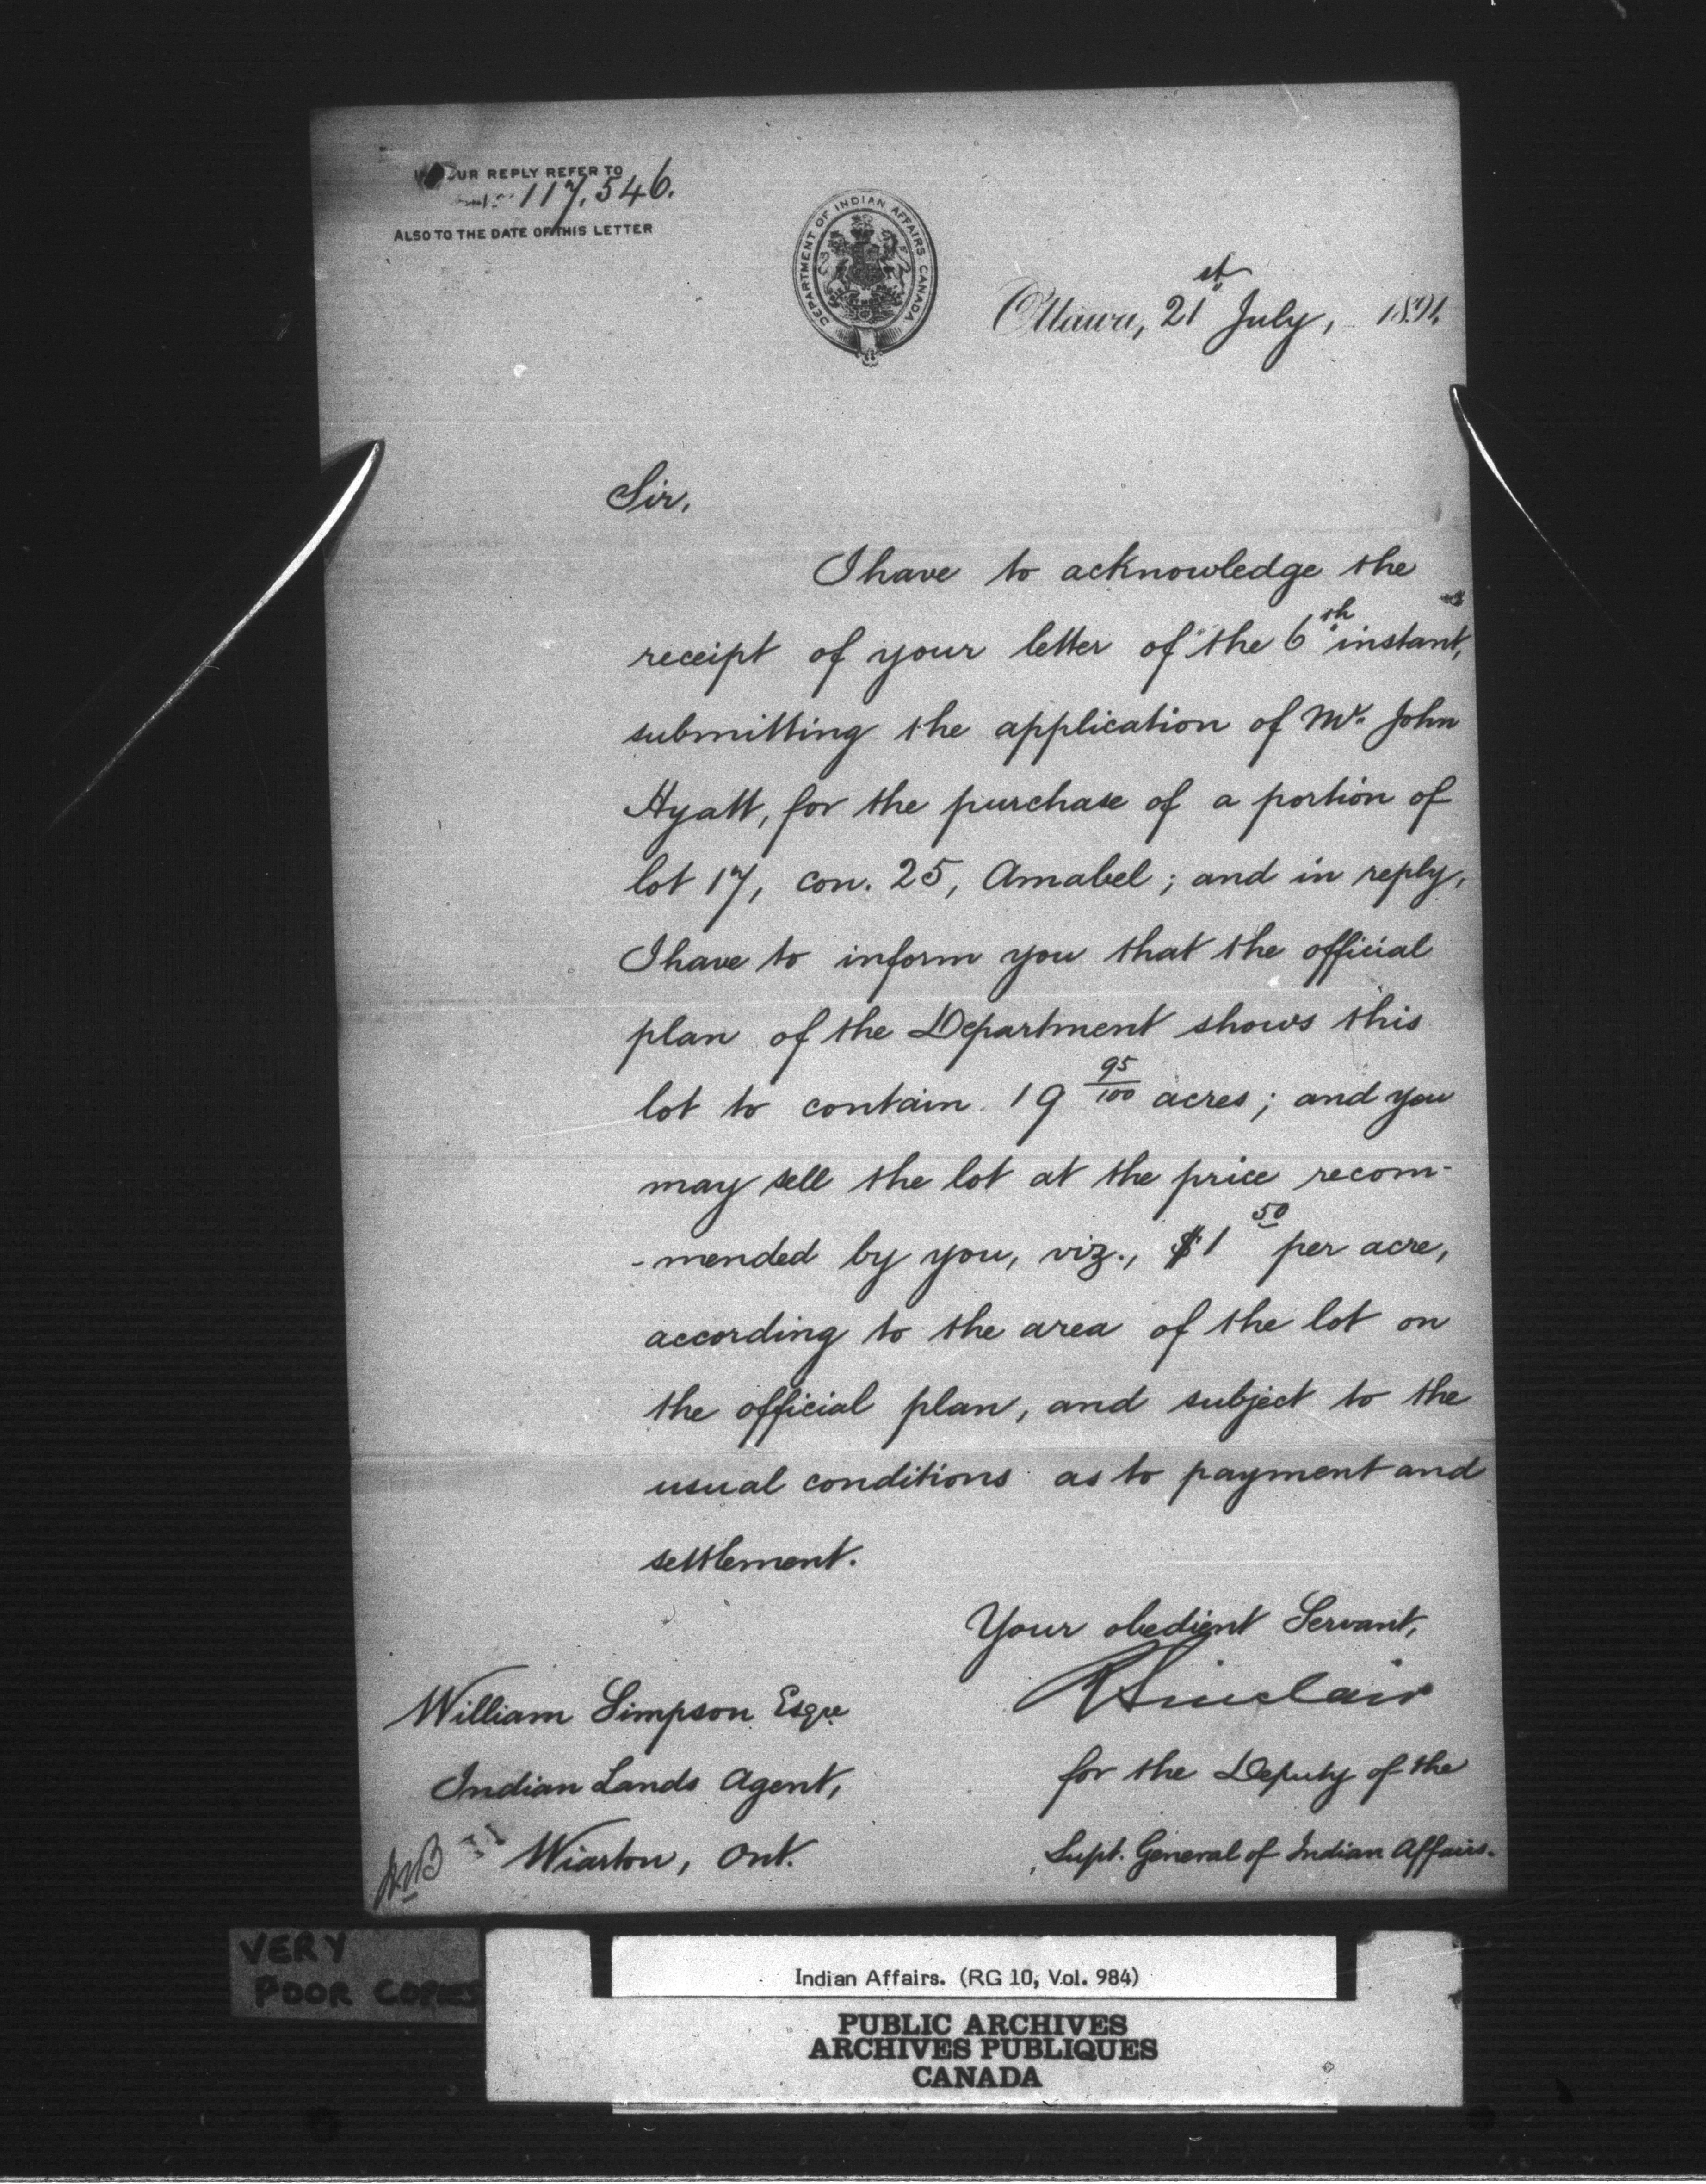 OUR REPLY REFER TO
117,546.
ALSO TO THE DATE OF THIS LETTER
DEPARTMENT OF INDIAN AFFAIRS CANADA
Ottawa, 21st July, 1891.
Sir,
I have to acknowledge the
receipt of your letter of the 6th instant,
submitting the application of Mr. John
Hyatt, for the purchase of a portion of
lot 17, con. 25, Amabel; and in reply,
I have to inform you that the official
plan of the Department shows this
lot to contain 19 95/100 acres; and you
may sell the lot at the price recom-
-mended by you, viz., $1 50 per acre,
according to the area of the lot on
the official plan, and subject to the
usual conditions as to payment and
settlement.
Your obedient Servant,
R Sinclair
for the Deputy of the
Supt. General of Indian Affairs.
William Simpson Esqre
Indian Lands Agent,
Wiarton, Ont.
VERY
POOR COPIES
Indian Affairs. (RG 10, Vol. 984)
PUBLIC ARCHIVES
ARCHIVES PUBLIQUES
CANADA